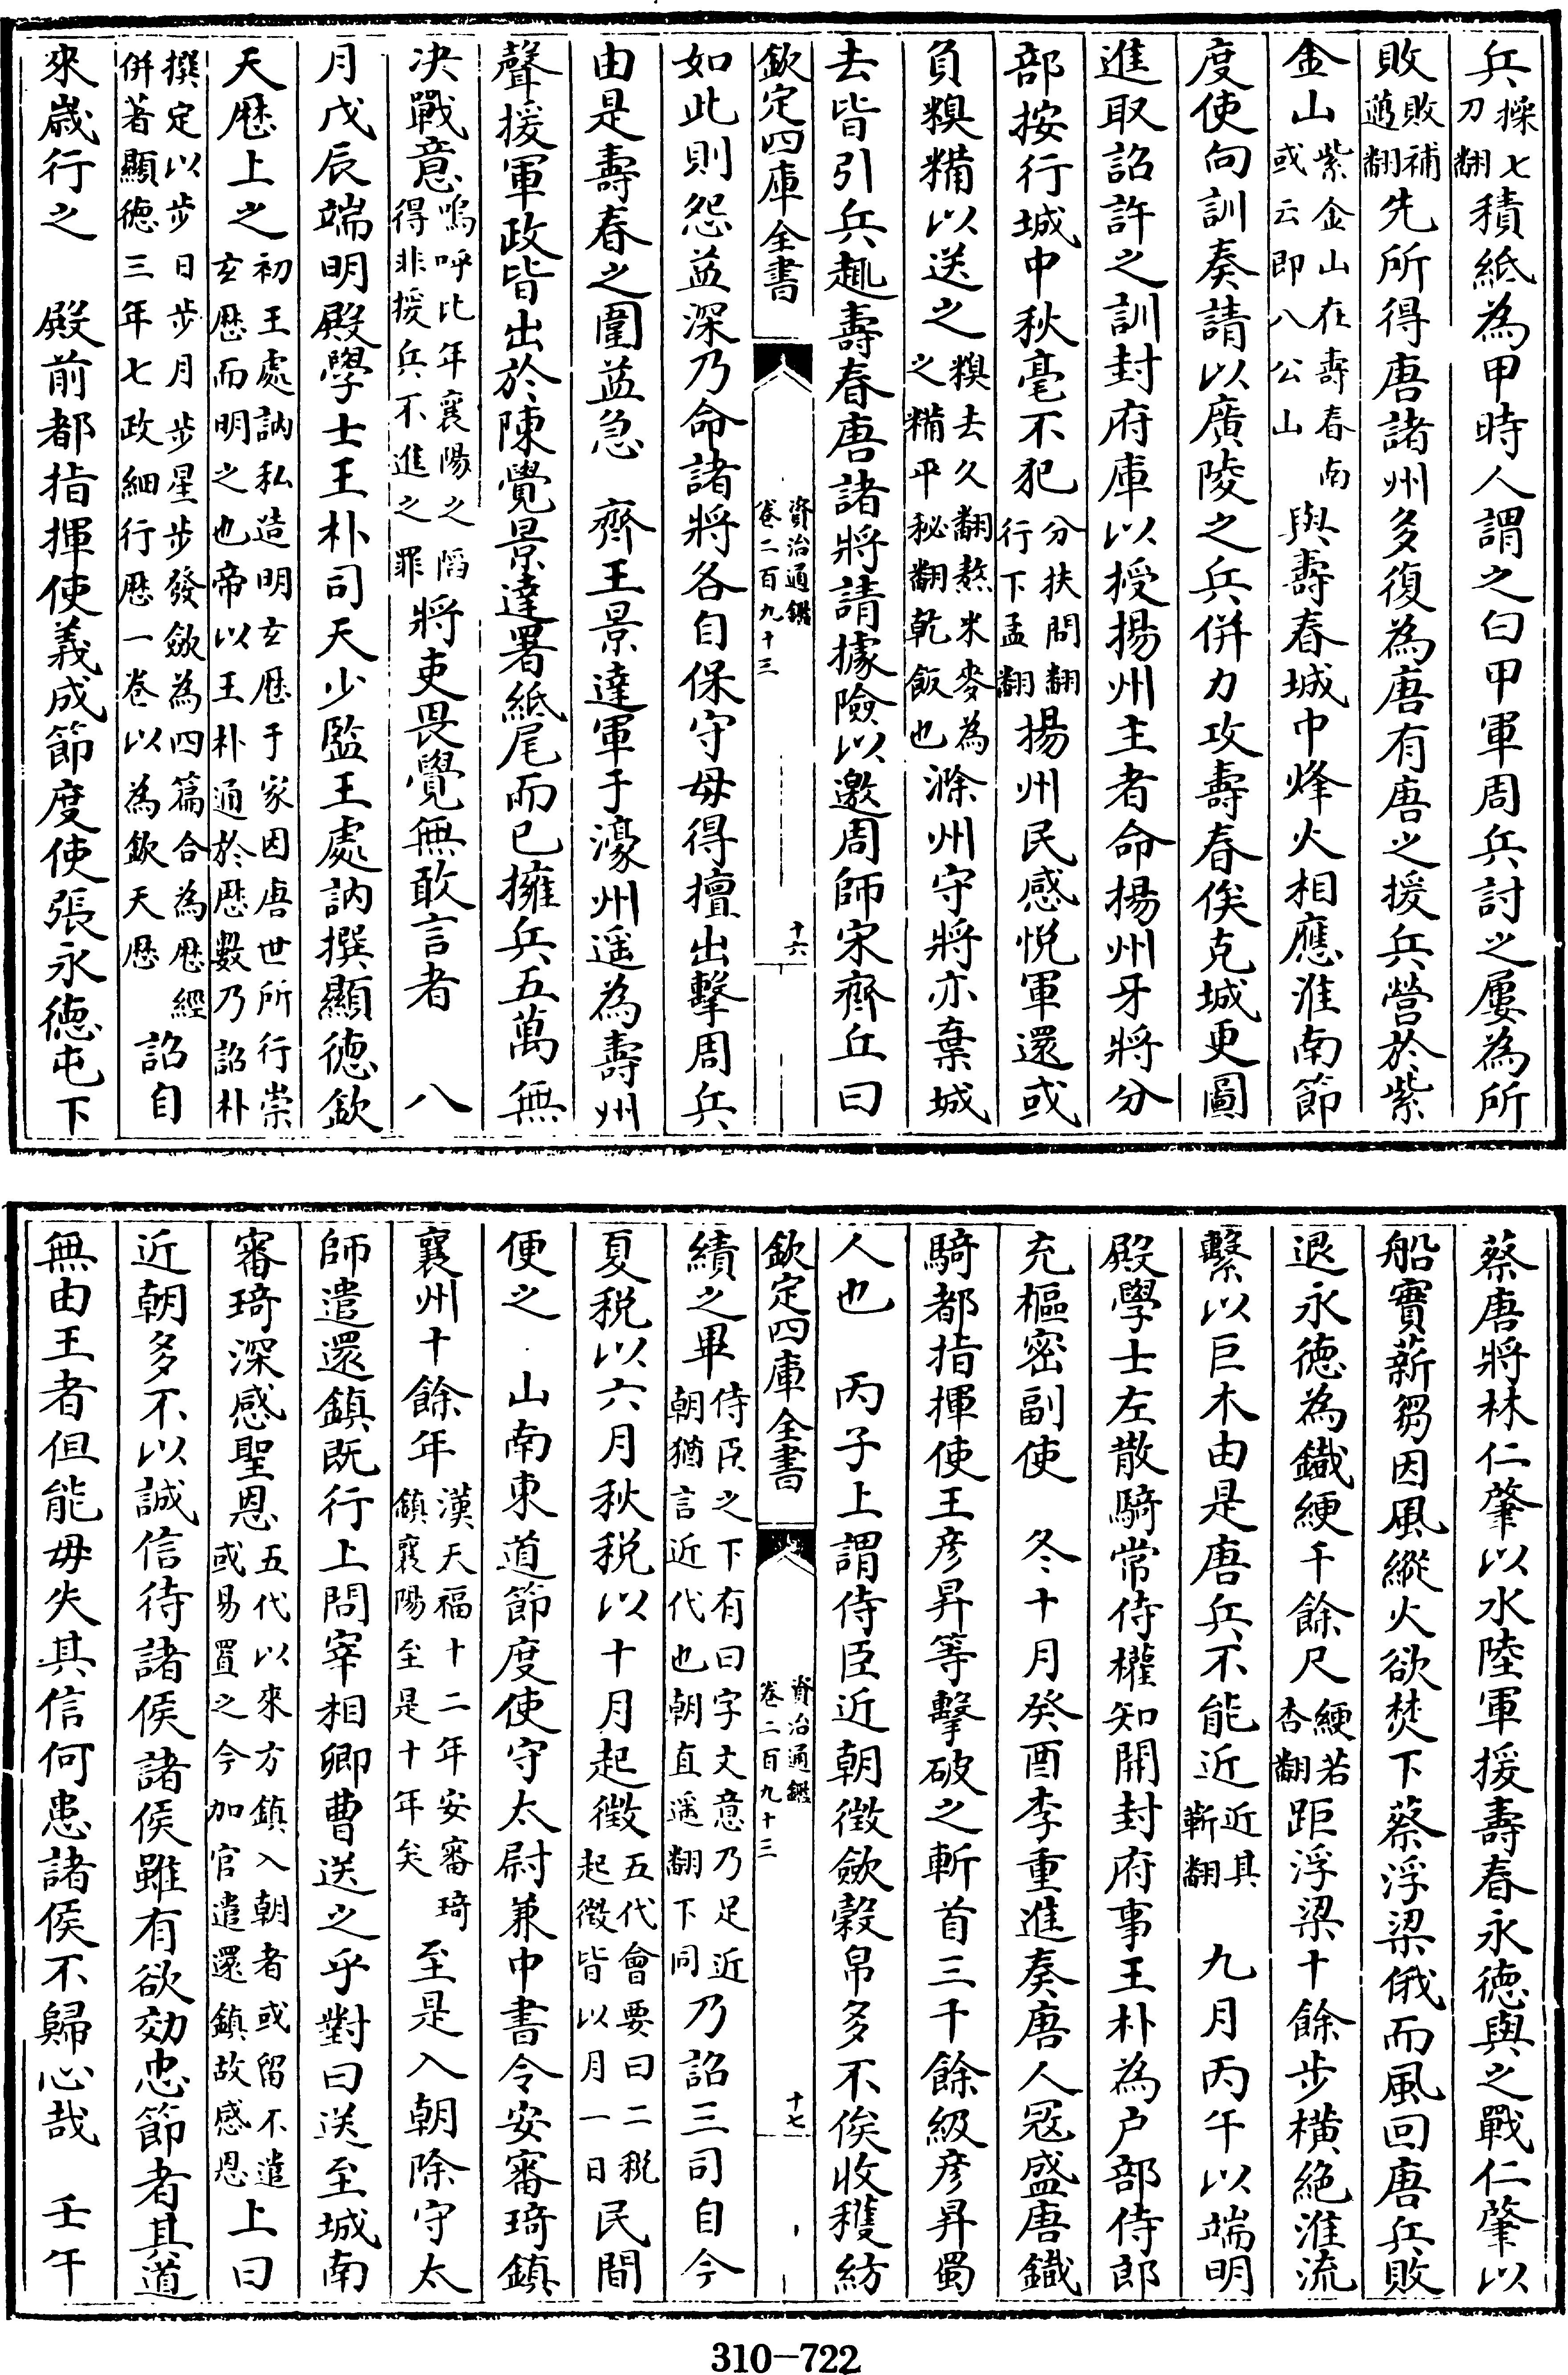 兵操七刀翻積紙為甲時人謂之白甲軍周兵討之屢為所
敗敗補邁翻先所得唐諸州多復為唐有唐之援兵營於紫
金山紫金山在壽春南或云即八公山與壽春城中烽火相應淮南節
度使向訓奏請以廣陵之兵併力攻壽春俟克城更圖
進取詔許之訓封府庫以授揚州主者命揚州牙將分
部按行城中秋毫不犯分扶問翻行下孟翻揚州民感悅軍還或
負糗糒以送之糗去久翻熬米麥為之糒平秘翻乾飯也滁州守將亦棄城
去皆引兵趣壽春唐諸將請據險以邀周師宋齊丘曰
欽定四庫全書 資治通鑑卷二百九十三 十六
如此則怨益深乃命諸將各自保守毋得擅出擊周兵
由是壽春之圍益急 齊王景達軍于濠州遥為壽州
聲援軍政皆出於陳覺景達署紙尾而已擁兵五萬無
决戰意嗚呼比年襄陽之䧟得非援兵不進之罪將吏畏覺無敢言者 八
月戊辰端明殿學士王朴司天少監王處訥撰顯徳欽
天厯上之初王處訥私造明玄厯于家因唐世所行崇玄厯而明之也帝以王朴通於厯數乃詔朴
撰定以步日步月步星步發斂為四篇合為厯經併著顯徳三年七政細行厯一卷以為欽天厯詔自
來歲行之 殿前都指揮使義成節度使張永徳屯下
蔡唐將林仁肇以水陸軍援壽春永徳與之戰仁肇以
船實薪芻因風縱火欲焚下蔡浮梁俄而風回唐兵敗
退永徳為鐵綆千餘尺綆若杏翻距浮梁十餘步横絶淮流
繫以巨木由是唐兵不能近近其靳翻 九月丙午以端明
殿學士左散騎常侍權知開封府事王朴為户部侍郎
充樞密副使 冬十月癸酉李重進奏唐人冦盛唐鐵
騎都指揮使王彦昇等擊破之斬首三千餘級彦昇蜀
人也 丙子上謂侍臣近朝徴斂穀帛多不俟收穫紡
欽定四庫全書 資治通鑑卷二百九十三 十七
績之畢侍臣之下有曰字文意乃足近朝猶言近代也朝直遥翻下同乃詔三司自今
夏税以六月秋税以十月起徴五代會要曰二税起徴皆以月一日民間
便之 山南東道節度使守太尉兼中書令安審琦鎮
襄州十餘年漢天福十二年安審琦鎮襄陽至是十年矣至是入朝除守太
師遣還鎮既行上問宰相卿曹送之乎對曰送至城南
審琦深感聖恩五代以來方鎮入朝者或留不遣或易置之今加官遣還鎮故感恩上曰
近朝多不以誠信待諸侯諸侯雖有欲効忠節者其道
無由王者但能毋失其信何患諸侯不歸心哉 壬午
310—722